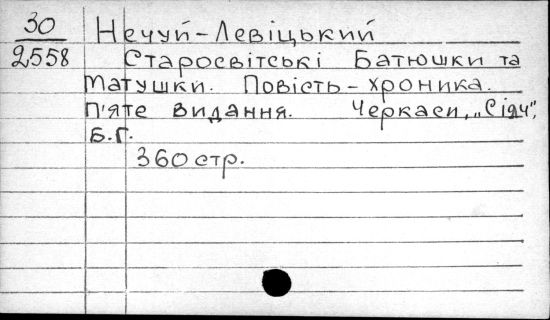 30
2558
Нечуй-Левіцький
Старосвітські Батюшки та
Матушки. Повість - хроника.
П'яте видання. Черкаси, „Сіяч",
Б.Г.
360 стр.